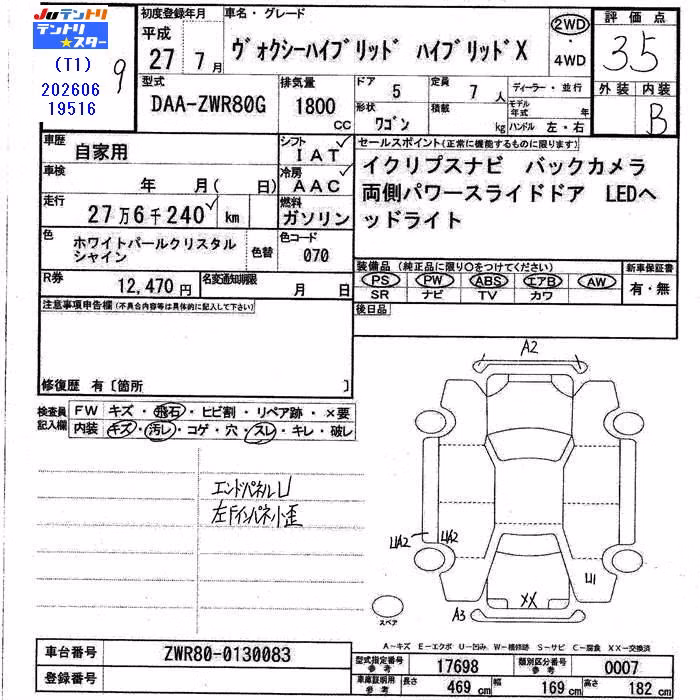 Juテントリ
テントリ★スター
(T1)
202606
19516
9
初度登録年月
平成
27年 7月
車名・グレード
ヴォクシーハイブリッド ハイブリッドX
2WD
・
4WD
評価点
3.5
外装 内装
B
型式
DAA-ZWR80G
排気量
1800
CC
ドア
5
形状
ワゴン
定員
7人
積載
kg
ディーラー・並行
モデル年式 年
ハンドル 左・右
車歴
自家用
シフト
IAT
車検
年 月(日)
冷房
AAC
走行
27万6千240 km
燃料
ガソリン
セールスポイント(正常に機能するものに限ります)
イクリプスナビ バックカメラ
両側パワースライドドア LEDヘ
ッドライト
色
ホワイトパールクリスタル
シャイン
色替
色コード
070
装備品(純正品に限り○をつけてください)
PS PW ABS エアB AW
SR ナビ TV カワ
新車保証書
有・無
R券
12,470円
名変通知期限
月 日
後日品
注意事項申告欄(不具合内容等は具体的に記入して下さい)
修復歴 有〔箇所 〕
検査員
記入欄
FW キズ・飛石・ヒビ割・リペア跡・×要
内装 キズ・汚レ・コゲ・穴・スレ・キレ・破レ
エンドパネルU
左Fインパネ小歪
A2
UA2 UA2
U1
XX
A3
スペア
A～キズ E～エクボ U～凹み W～補修跡 S～サビ C～腐食 XX～交換済
車台番号 ZWR80-0130083
登録番号
型式指定番号
参考
17698
類別区分番号
参考
0007
車庫証明用
参考
長さ 469 cm 幅 169 cm 高さ 182 cm